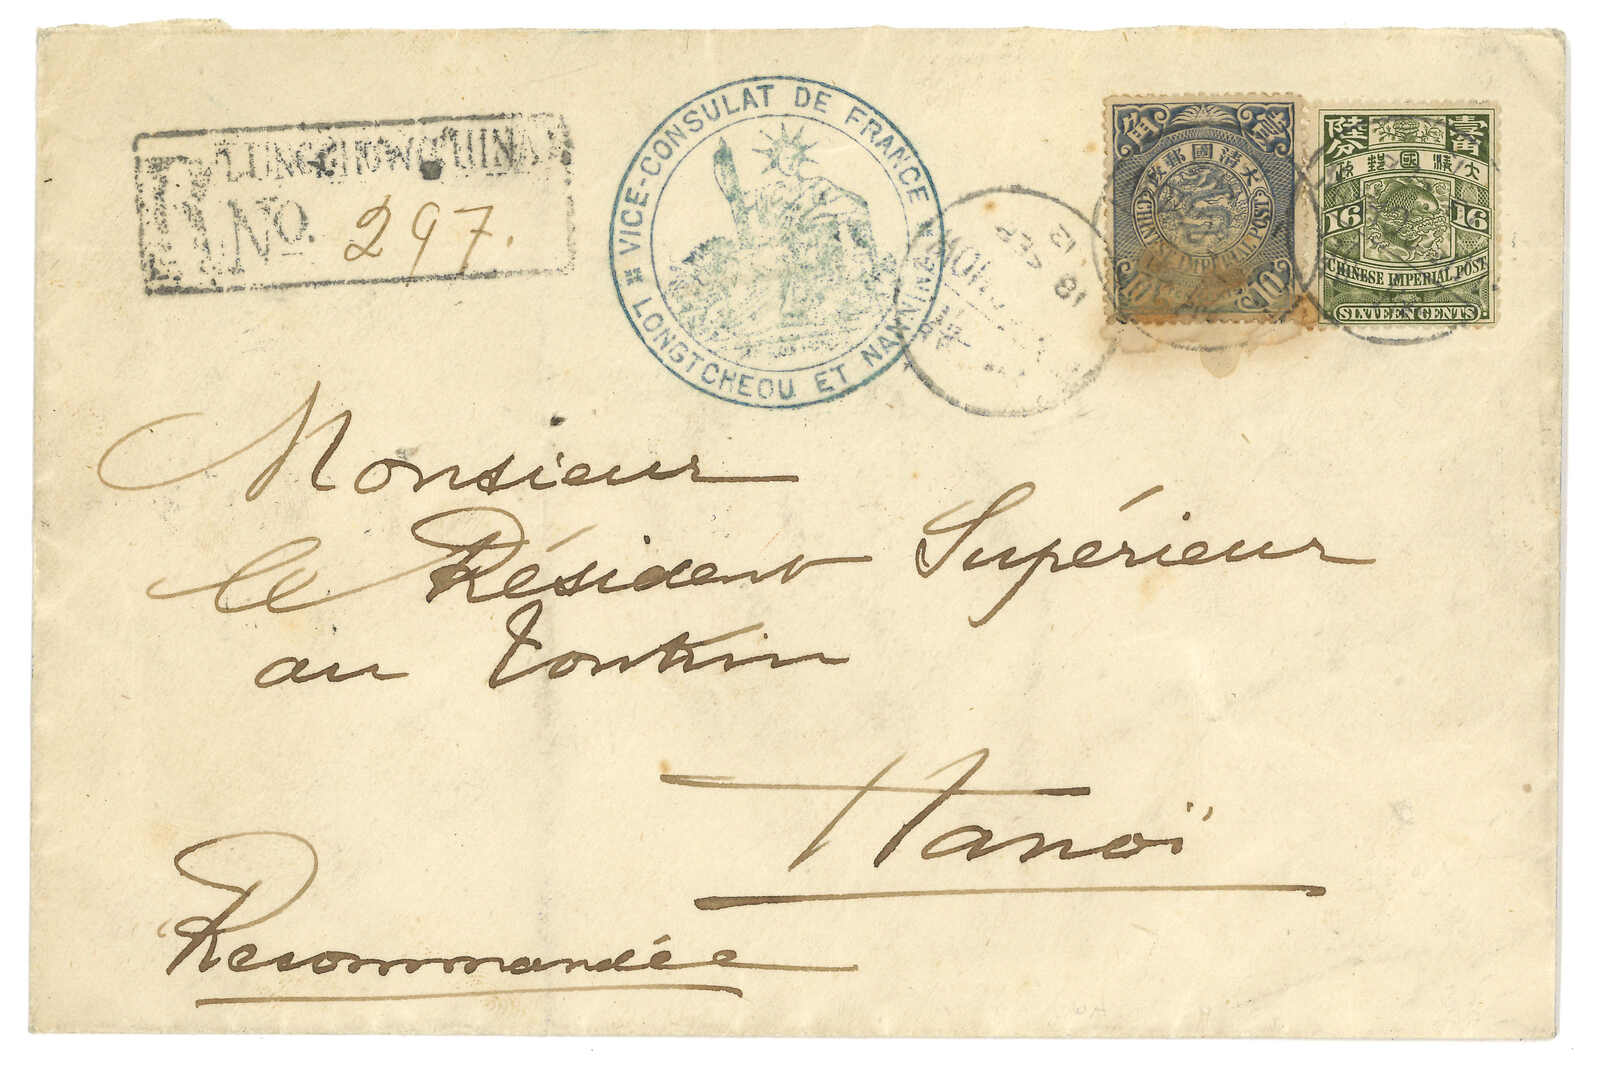 R LUNGCHOW CHINA
No. 297.
VICE-CONSULAT DE FRANCE
LONGTCHEOU ET NANNING
12
FEB
18
壹角
大清國郵政
CHINESE IMPERIAL POST
10
壹角陸分
大清國郵政
16 16
CHINESE IMPERIAL POST
SIXTEEN CENTS
Monsieur
le Résident Supérieur
au Tonkin
Hanoï
Recommandée